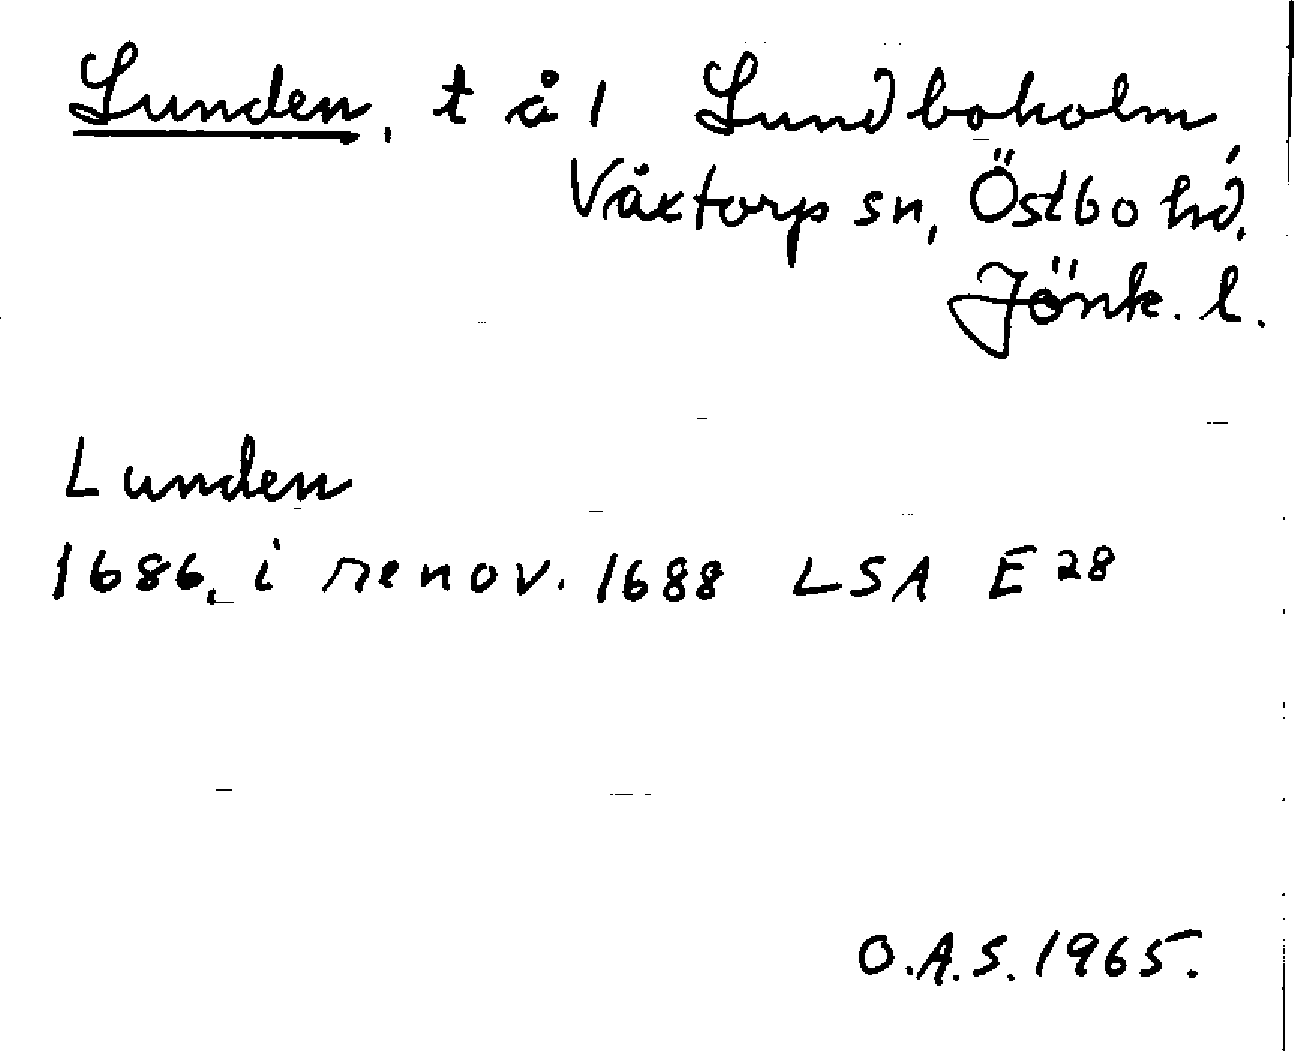 Lunden, t å 1 Lundboholm,
Våxtorp sn, Östbo hd,
Jönk. l.
Lunden
1686, i renov. 1688 LSA E 28
O.A.S. 1965.